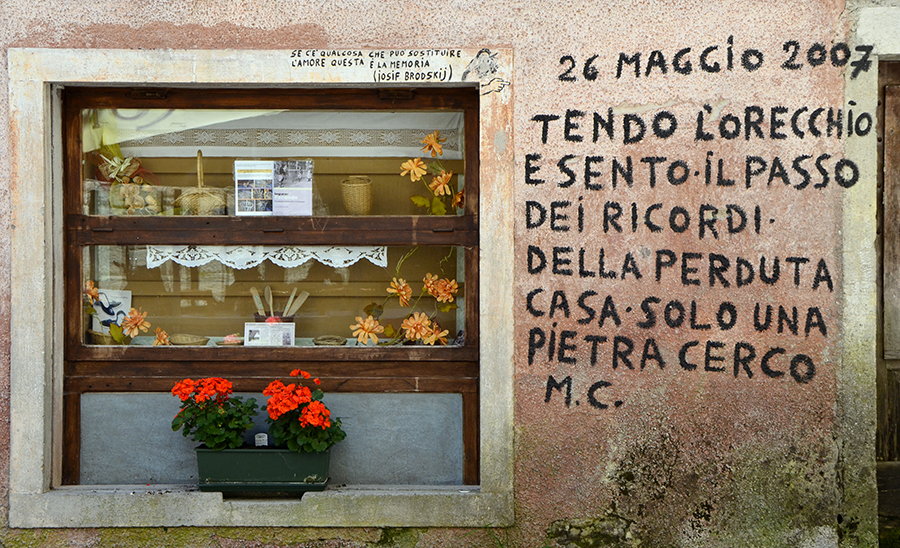 SE C'È QUALCOSA CHE PUÒ SOSTITUIRE
L'AMORE QUESTA È LA MEMORIA
(JOSIF BRODSKIJ)
26 MAGGIO 2007
TENDO L'ORECCHIO
E SENTO·IL PASSO
DEI RICORDI·
DELLA PERDUTA
CASA·SOLO UNA
PIETRA CERCO
M.C.